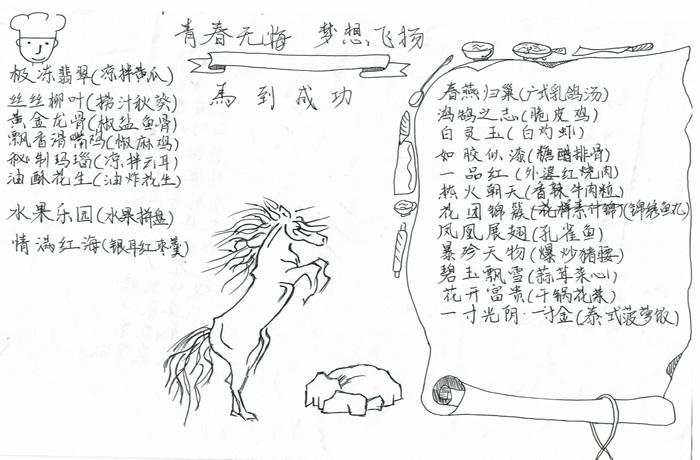 青春无悔 梦想飞扬
馬到成功
极冻翡翠(凉拌黄瓜)
丝丝柳叶(捞汁秋葵)
黄金龙骨(椒盐鱼骨)
飘香滑嘴鸡(椒麻鸡)
秘制玛瑙(凉拌云耳)
油酥花生(油炸花生)
水果乐园(水果拼盘)
情满红海(银耳红枣羹)
春燕归巢(广式乳鸽汤)
鸿鹄之志(脆皮鸡)
白灵玉(白灼虾)
如胶似漆(糖醋排骨)
一品红(外婆红烧肉)
松火朝天(香辣牛肉粒)
花团锦簇(花样素什锦)(锦绣鱼丸)
凤凰展翅(孔雀鱼)
暴殄天物(爆炒猪腰)
碧玉飘雪(蒜茸菜心)
花开富贵(干锅花菜)
一寸光阴一寸金(泰式菠萝饭)